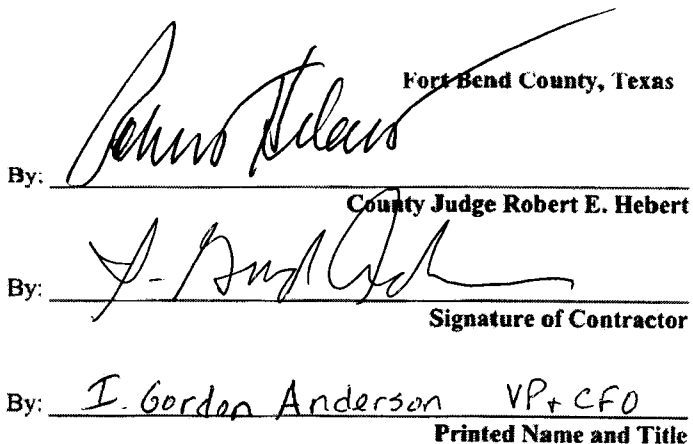 Fort Bend County, Texas
By: Robert Hebert
County Judge Robert E. Hebert
By: I. Gordon Anderson
Signature of Contractor
By: I. Gordon Anderson VP + CFO
Printed Name and Title